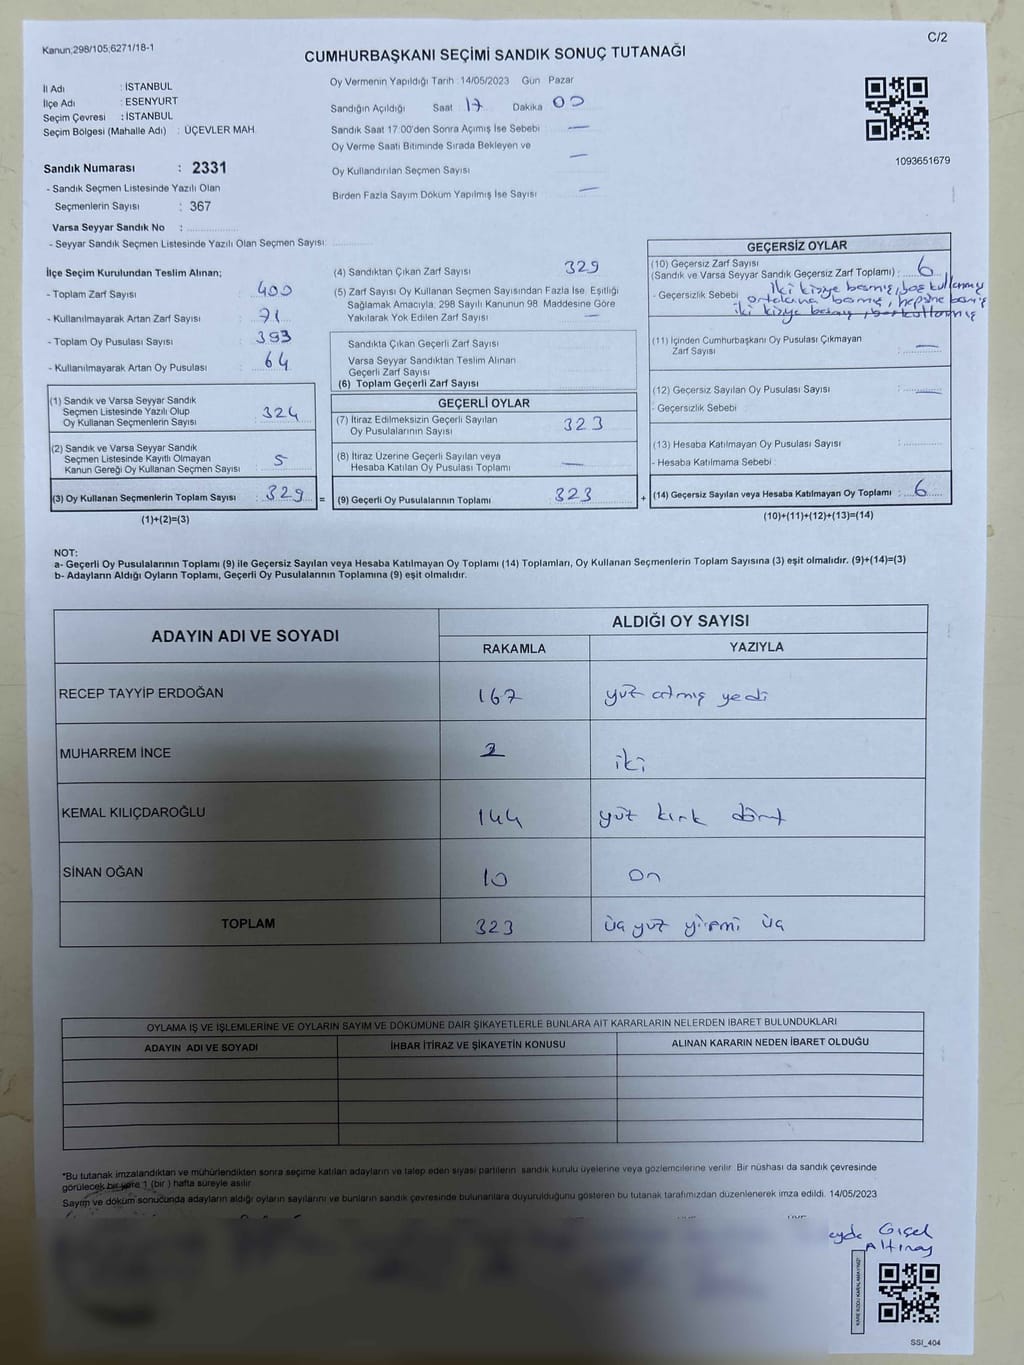 Kanun;298/105;6271/18-1
C/2
CUMHURBAŞKANI SEÇİMİ SANDIK SONUÇ TUTANAĞI
İl Adı : İSTANBUL
İlçe Adı : ESENYURT
Seçim Çevresi : İSTANBUL
Seçim Bölgesi (Mahalle Adı) : ÜÇEVLER MAH.
Sandık Numarası : 2331
- Sandık Seçmen Listesinde Yazılı Olan
Seçmenlerin Sayısı : 367
Varsa Seyyar Sandık No :
- Seyyar Sandık Seçmen Listesinde Yazılı Olan Seçmen Sayısı:
Oy Vermenin Yapıldığı Tarih :14/05/2023 Gün Pazar
Sandığın Açıldığı Saat 17 Dakika 00
Sandık Saat 17:00'den Sonra Açımış İse Sebebi —
Oy Verme Saati Bitiminde Sırada Bekleyen ve
Oy Kullandırılan Seçmen Sayısı —
Birden Fazla Sayım Döküm Yapılmış İse Sayısı —
1093651679
İlçe Seçim Kurulundan Teslim Alınan;
- Toplam Zarf Sayısı : 400
- Kullanılmayarak Artan Zarf Sayısı : 71
- Toplam Oy Pusulası Sayısı : 393
- Kullanılmayarak Artan Oy Pusulası : 64
(1) Sandık ve Varsa Seyyar Sandık
Seçmen Listesinde Yazılı Olup
Oy Kullanan Seçmenlerin Sayısı : 324
(2) Sandık ve Varsa Seyyar Sandık
Seçmen Listesinde Kayıtlı Olmayan
Kanun Gereği Oy Kullanan Seçmen Sayısı : 5
(3) Oy Kullanan Seçmenlerin Toplam Sayısı : 329 =
(1)+(2)=(3)
(4) Sandıktan Çıkan Zarf Sayısı 329
(5) Zarf Sayısı Oy Kullanan Seçmen Sayısından Fazla İse, Eşitliği
Sağlamak Amacıyla, 298 Sayılı Kanunun 98. Maddesine Göre
Yakılarak Yok Edilen Zarf Sayısı —
Sandıkta Çıkan Geçerli Zarf Sayısı
Varsa Seyyar Sandıktan Teslim Alınan
Geçerli Zarf Sayısı
(6) Toplam Geçerli Zarf Sayısı
GEÇERLİ OYLAR
(7) İtiraz Edilmeksizin Geçerli Sayılan
Oy Pusulalarının Sayısı 323
(8) İtiraz Üzerine Geçerli Sayılan veya
Hesaba Katılan Oy Pusulası Toplamı —
(9) Geçerli Oy Pusulalarının Toplamı 323 +
GEÇERSİZ OYLAR
(10) Geçersiz Zarf Sayısı
(Sandık ve Varsa Seyyar Sandık Geçersiz Zarf Toplamı) : 6
- Geçersizlik Sebebi : İki kişiye basmış, boş kullanmış
ortalarına basmış, hepsine basmış
iki kişiye basmış, boş kullanmış
(11) İçinden Cumhurbaşkanı Oy Pusulası Çıkmayan
Zarf Sayısı : —
(12) Geçersiz Sayılan Oy Pusulası Sayısı : —
- Geçersizlik Sebebi :
(13) Hesaba Katılmayan Oy Pusulası Sayısı :
- Hesaba Katılmama Sebebi :
(14) Geçersiz Sayılan veya Hesaba Katılmayan Oy Toplamı : 6
(10)+(11)+(12)+(13)=(14)
NOT:
a- Geçerli Oy Pusulalarının Toplamı (9) ile Geçersiz Sayılan veya Hesaba Katılmayan Oy Toplamı (14) Toplamları, Oy Kullanan Seçmenlerin Toplam Sayısına (3) eşit olmalıdır. (9)+(14)=(3)
b- Adayların Aldığı Oyların Toplamı, Geçerli Oy Pusulalarının Toplamına (9) eşit olmalıdır.
ADAYIN ADI VE SOYADI
ALDIĞI OY SAYISI
RAKAMLA YAZIYLA
RECEP TAYYİP ERDOĞAN 167 yüz atmış yedi
MUHARREM İNCE 2 iki
KEMAL KILIÇDAROĞLU 144 yüz kırk dört
SİNAN OĞAN 10 on
TOPLAM 323 üç yüz yirmi üç
OYLAMA İŞ VE İŞLEMLERİNE VE OYLARIN SAYIM VE DÖKÜMÜNE DAİR ŞİKAYETLERLE BUNLARA AİT KARARLARIN NELERDEN İBARET BULUNDUKLARI
ADAYIN ADI VE SOYADI İHBAR İTİRAZ VE ŞİKAYETİN KONUSU ALINAN KARARIN NEDEN İBARET OLDUĞU
*Bu tutanak imzalandıktan ve mühürlendikten sonra seçime katılan adayların ve talep eden siyasi partilerin sandık kurulu üyelerine veya gözlemcilerine verilir. Bir nüshası da sandık çevresinde
görülecek bir yere 1 (bir ) hafta süreyle asılır.
Sayım ve döküm sonucunda adayların aldığı oyların sayılarını ve bunların sandık çevresinde bulunanlara duyurulduğunu gösteren bu tutanak tarafımızdan düzenlenerek imza edildi. 14/05/2023
Gişel
Altınay
SSI_404